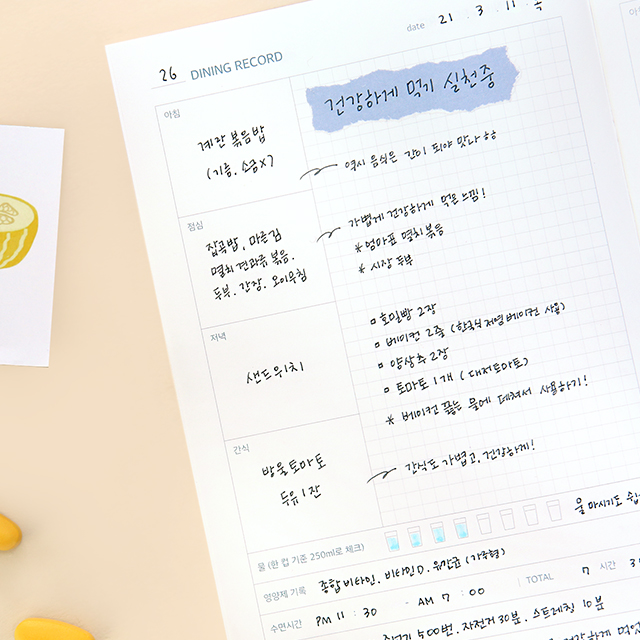 date 21 . 3 . 11 . 목
26 DINING RECORD
건강하게 먹기 실천중
아침
계란 볶음밥
(기름, 소금X)
역시 음식은 간이 되야 맛나 하
점심
잡곡밥, 마른김
멸치 견과류 볶음.
두부. 간장. 오이무침
가볍게 건강하게 먹은 느낌!
* 엄마표 멸치볶음
* 시장 두부
저녁
샌드위치
호밀빵 2장
베이컨 2줄 (한국식 저염베이컨 사용)
양상추 2장
토마토 1개 (대저토마토)
* 베이컨 끓는 물에 데쳐서 사용하기!
간식
방울토마토
두유 1잔
간식도 가볍고, 건강하게!
물 (한 컵 기준 250ml로 체크)
물 마시기도 쉽
영양제 기록
종합비타민, 비타민D. 유산균 (가루형)
수면시간 PM 11 : 30 - AM 7 : 00 TOTAL 7 시간 3
줄넘기 500번. 자전거 30분. 스트레칭 10분
건강하게 먹었